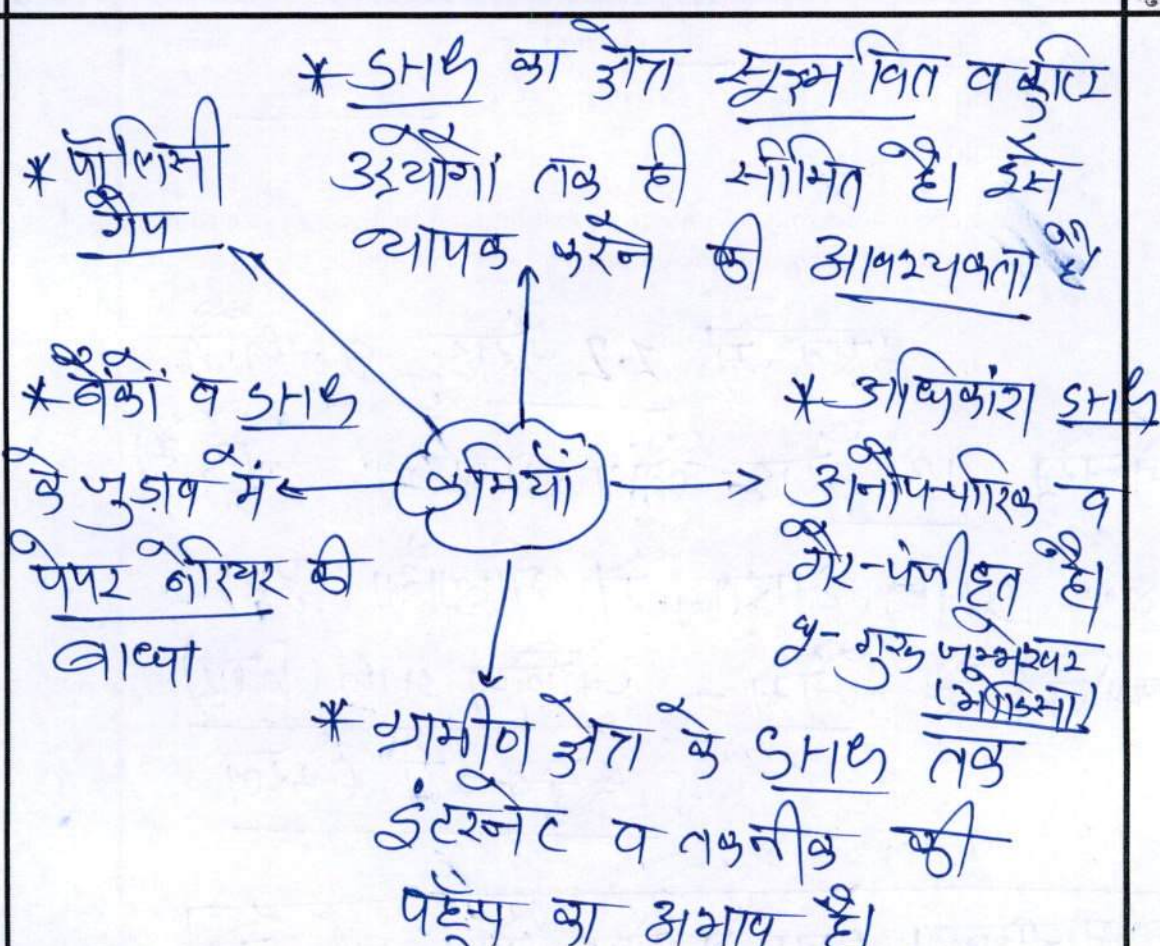 * SHG का क्षेत्र सूक्ष्म वित व कुटिर
उद्योगों तक ही सीमित है। इसे
व्यापक करने की आवश्यकता है
* पॉलिसी
गैप
* बैंकों व SHG
के जुडाव में
पेपर बेरियर की
बाधा
कमियाँ
* अधिकांश SHG
अनौपचारिक व
गैर-पंजीकृत है।
गुरु जम्भेश्वर
* ग्रामीण क्षेत्र के SHG तक
इंटरनेट व तकनीक की
पहुँच का अभाव है।